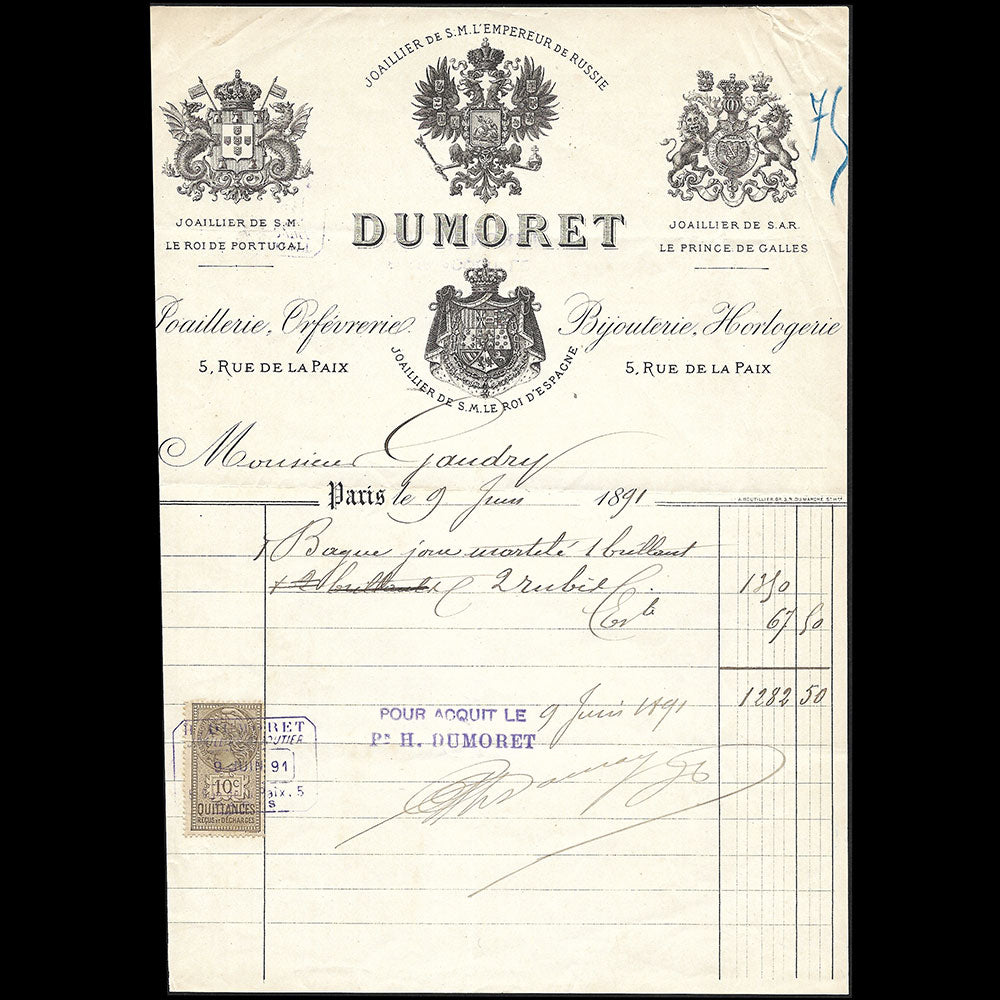 JOAILLIER DE S.M. L'EMPEREUR DE RUSSIE
75
JOAILLIER DE S.M.
LE ROI DE PORTUGAL
DUMORET
JOAILLIER DE S.A.R.
LE PRINCE DE GALLES
Joaillerie, Orfévrerie
Bijouterie, Horlogerie
5, RUE DE LA PAIX
JOAILLIER DE S.M. LE ROI D'ESPAGNE
5, RUE DE LA PAIX
Monsieur Gaudry
Paris le 9 Juin 1891
1 Bague jonc martelé 1 brillant
2 rubis 1350
Esc 67 50
1282 50
POUR ACQUIT LE 9 Juin 1891
Pn H. DUMORET
9 JUIN 91
10c
QUITTANCES
REÇUS ET DÉCHARGES